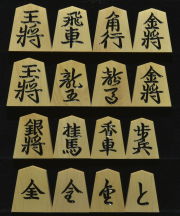 王将 飛車 角行 金将
玉将 龍王 龍馬 金将
銀将 桂馬 香車 歩兵
全 と